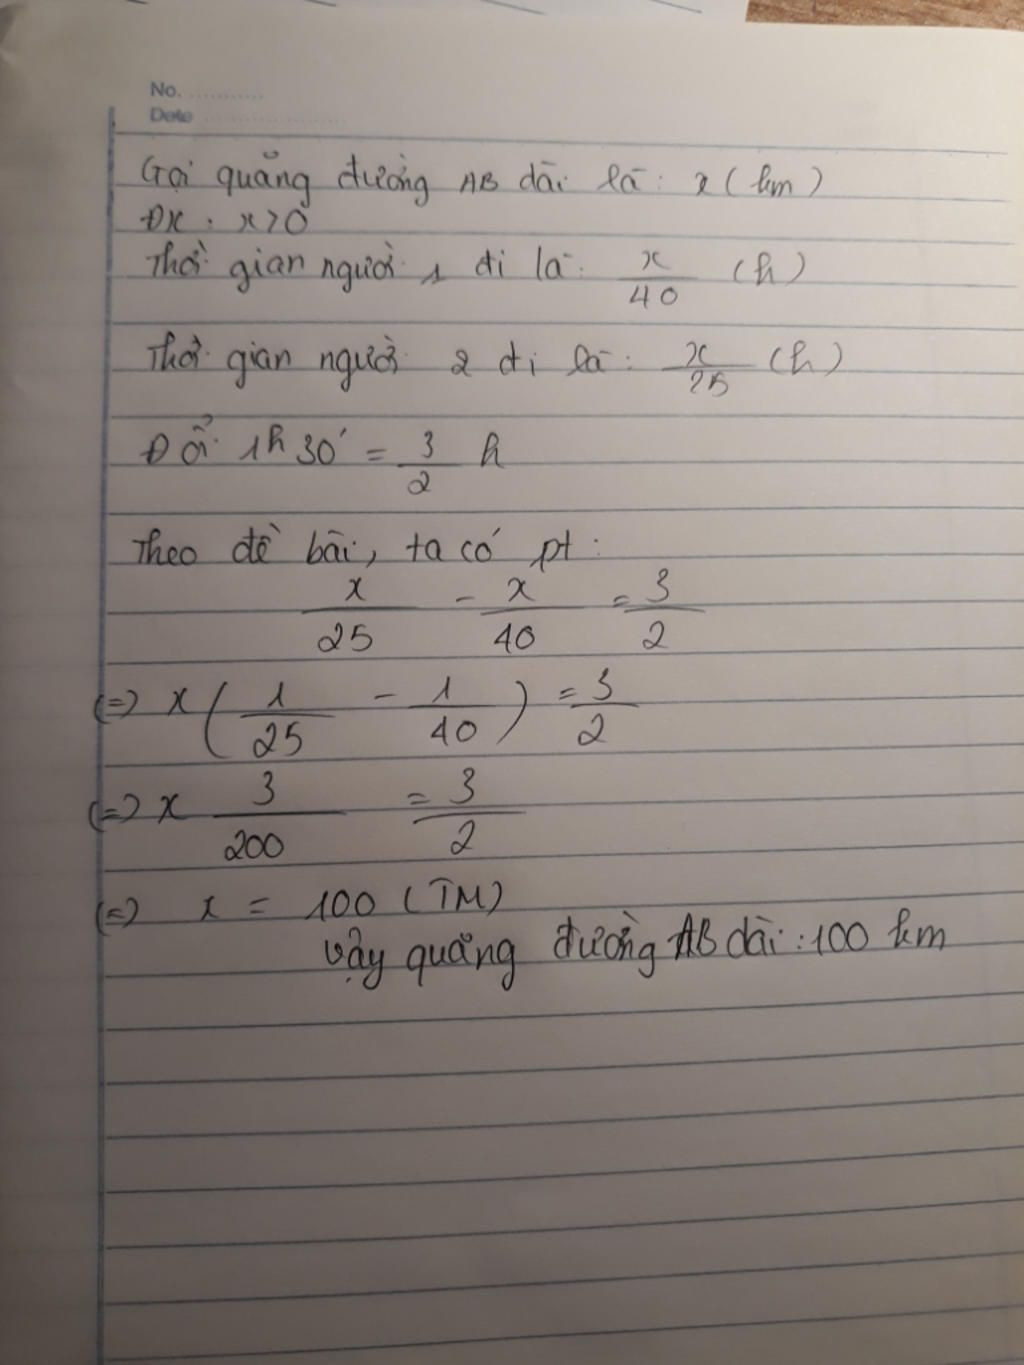 No. ...........
Date ......................
Gọi quãng đường AB dài là: x (km)
ĐK: x > 0
Thời gian người 1 đi là: x/40 (h)
Thời gian người 2 đi là: x/25 (h)
Đổi 1h30' = 3/2 h
Theo đề bài, ta có pt:
x/25 - x/40 = 3/2
(=) x(1/25 - 1/40) = 3/2
(=) x 3/200 = 3/2
(=) x = 100 (TM)
Vậy quãng đường AB dài: 100 km